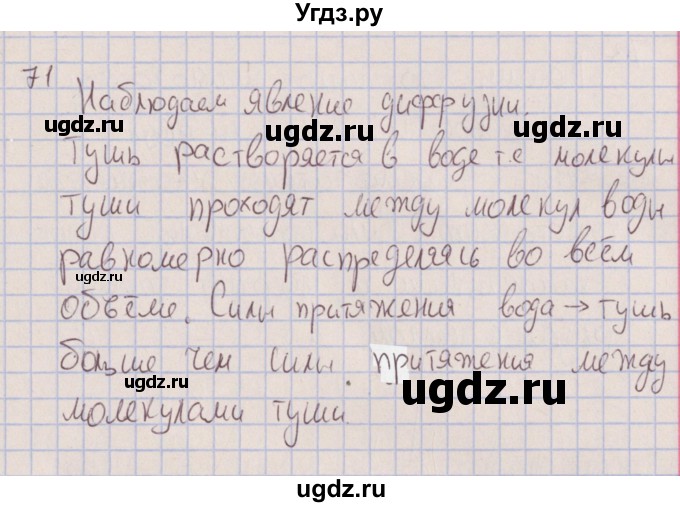 Угдз.ру
71
Наблюдаем явление диффузии.
ugdz.ru ugdz.ru
Тушь растворяется в воде т.е молекулы
туши проходят между молекул воды
ugdz.ru
равномерно распределяясь во всём
ugdz.ru
объёме. Силы притяжения вода → тушь
ugdz.ru
больше чем силы притяжения между
ugdz.ru
молекулами туши.
ugdz.ru
ugdz.ru